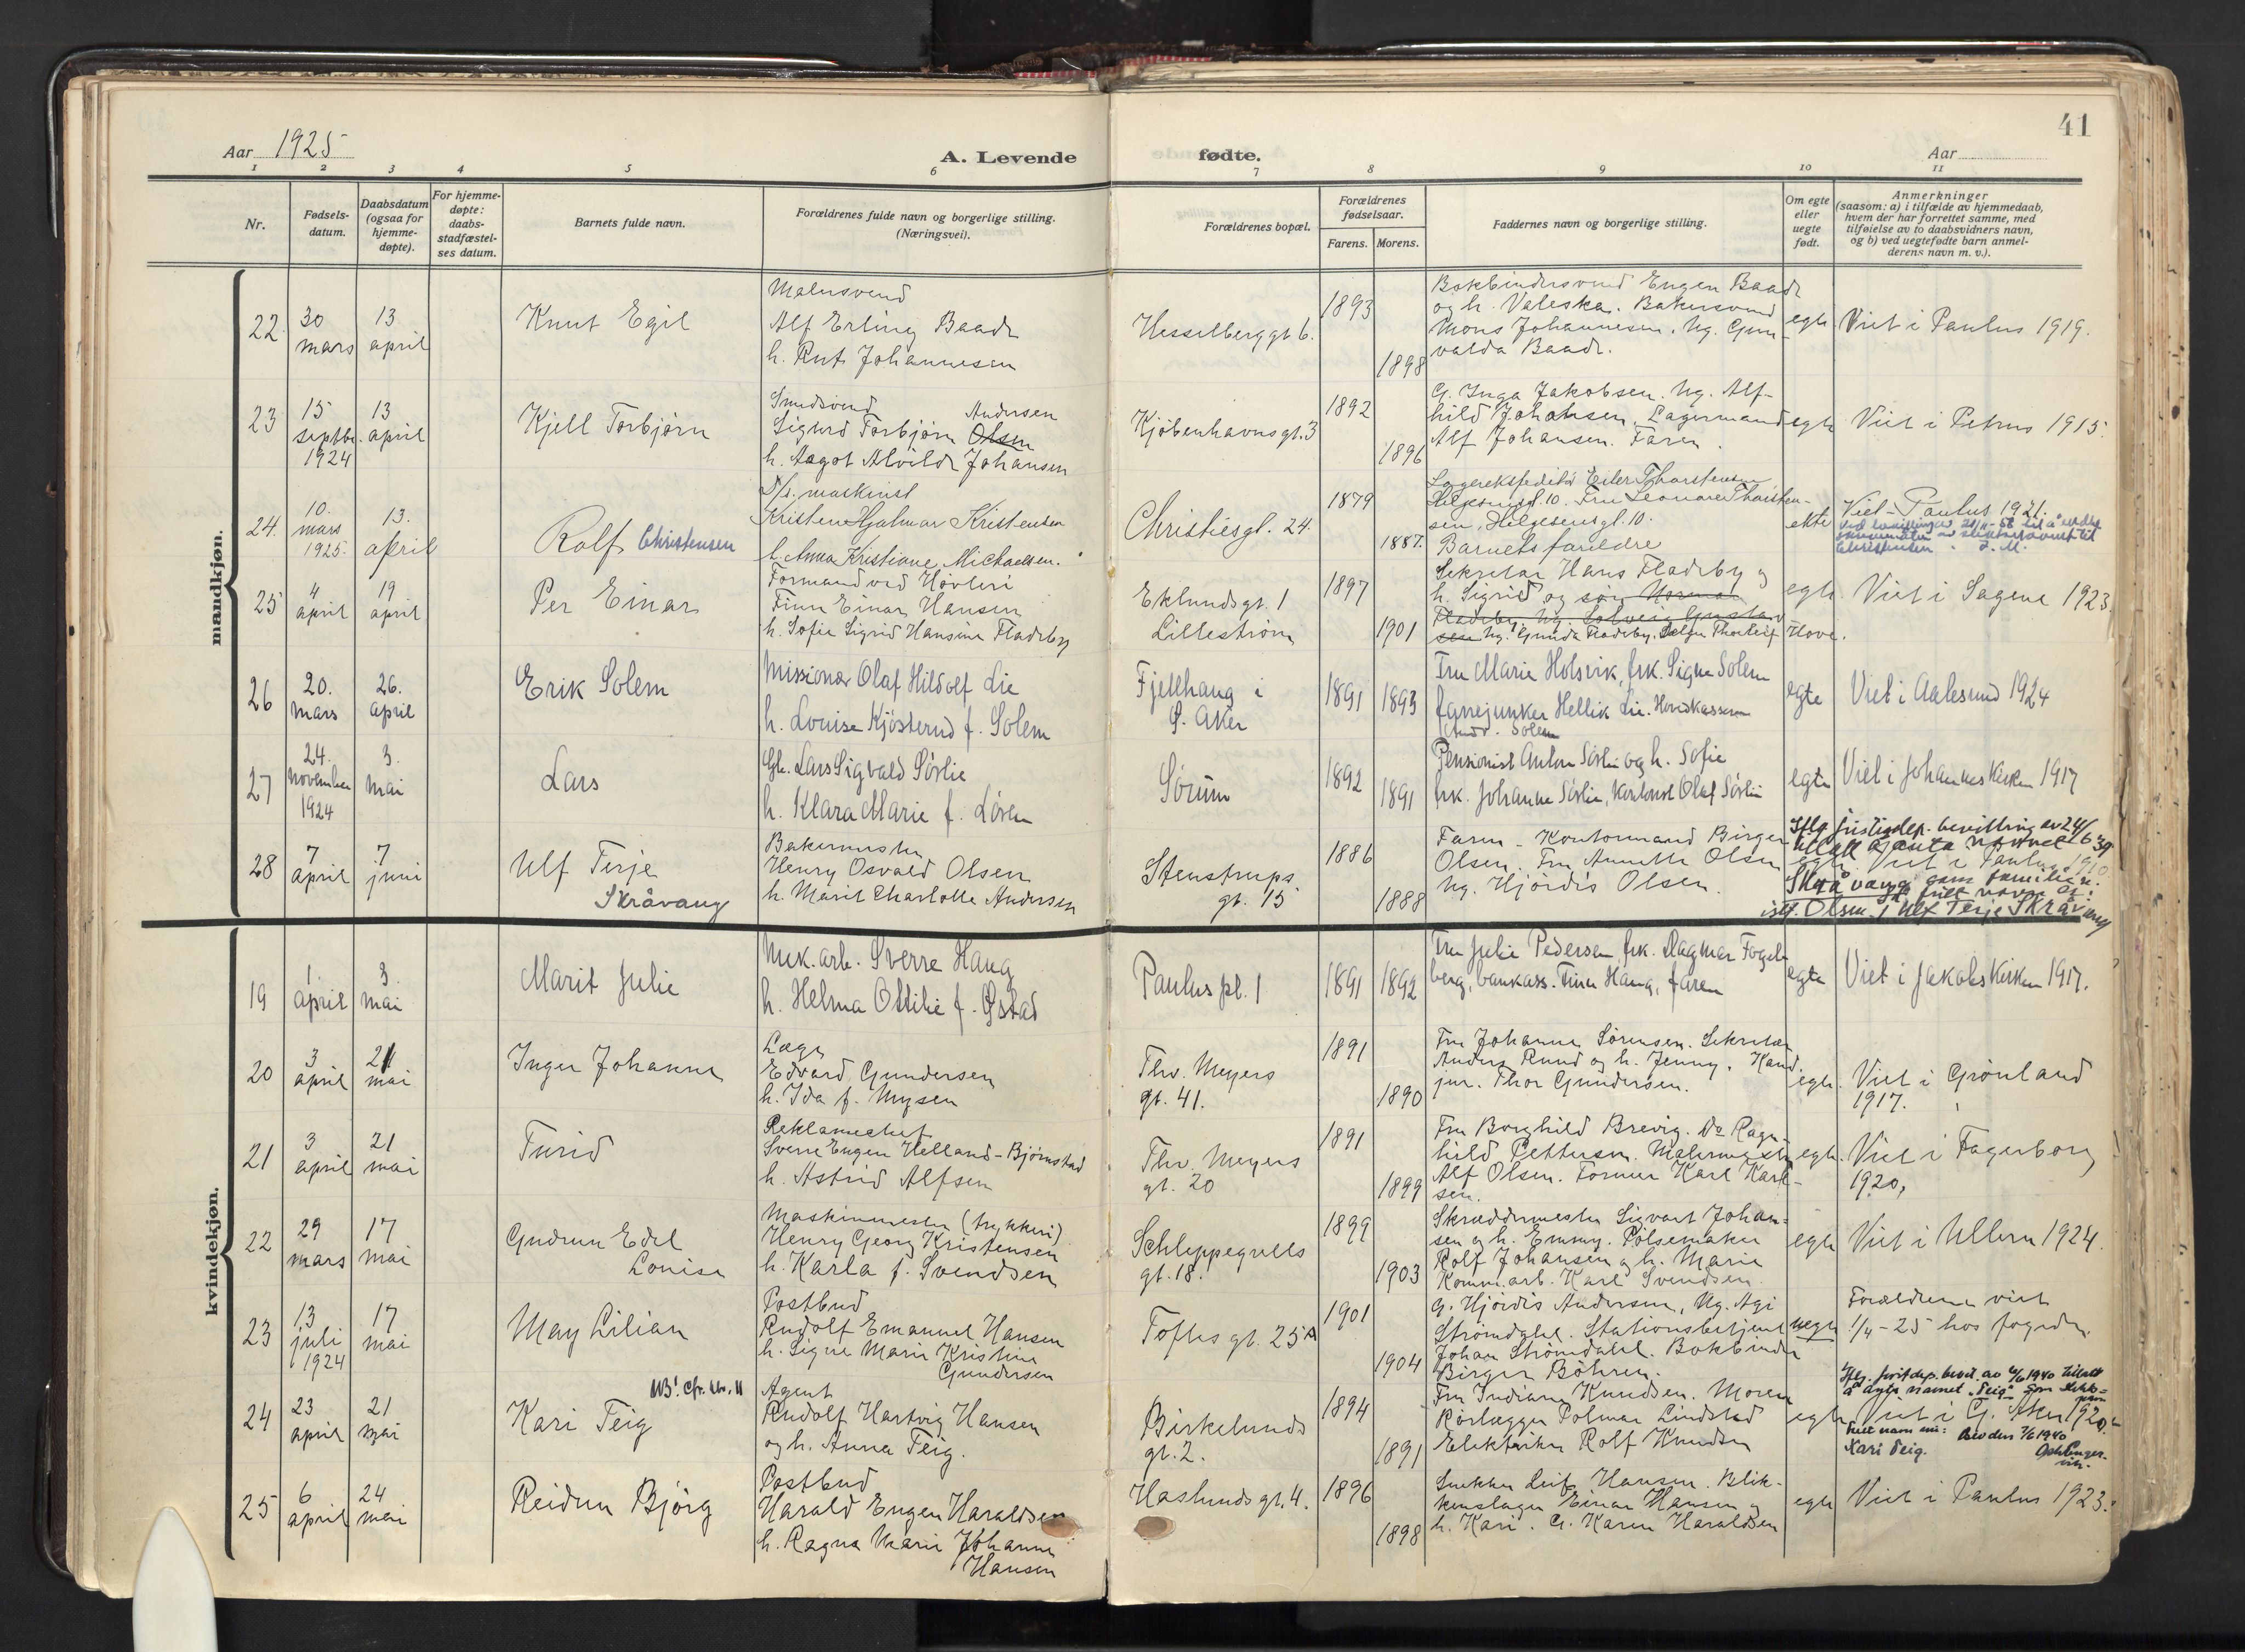 41
Aar 1925
A. Levende
fødte.
Aar
1 2 3 4 5 6 7 8 9 10 11
Nr.
Fødsels-
datum.
Daabsdatum
(ogsaa for
hjemme-
døpte).
For hjemme-
døpte:
daabs-
stadfæstel-
ses datum.
Barnets fulde navn.
Forældrenes fulde navn og borgerlige stilling.
(Næringsvei).
Forældrenes bopæl.
Forældrenes
fødselsaar.
Farens. Morens.
Faddernes navn og borgerlige stilling.
Om egte
eller
uegte
født.
Anmerkninger
(saasom: a) i tilfælde av hjemmedaab,
hvem der har forrettet samme, med
tilføielse av to daabsvidners navn,
og b) ved uegtefødte barn anmel-
derens navn m. v.).
mandkjøn.
22
30
mars
13
april
Knut Egil
Malersvend
Alf Erling Baade
h. Rut Johannesen
Hesselbergs gt 6.
1893
1898
Bokbindersvend Eugen Baade
og h. Valeska. Bakersvend
Mons Johannesen. Ug. Gun-
valda Baade.
egte
Viet i Paulus 1919.
23
15
septbr.
1924
13
april
Kjell Torbjørn
Smedsvend
Andersen
Sigurd Torbjørn Olsen
h. Aagot Alvilde Johansen
Kjøbenhavnsgt. 3
1892
1896
G. Inga Jakobsen. Ug. Alf-
hild Johansen. Lagermand
Alf Johansen. Faren.
egte
Viet i Petrus 1915.
24.
10.
mars
1925.
13.
april
Rolf Christensen
D/s. maskinist
Kristen Hjalmar Kristensen
h. Anna Kristiane Michaelsen.
Christiesgt. 24.
1879
1887.
Lagerekspeditør Eiler Thorstensen
Helgesensgt. 10. Fru Leonore Thorsten-
sen, Helgesensgt. 10.
Barnets foreldre
ekte
Viet - Paulus 1921.
Christensen. J.M.
25
4
april
19
april
Per Einar
Formand ved Høvleri
Finn Einar Hansen
h. Sofie Sigrid Hansine Fladeby
Eklundsgt. 1
Lillestrøm
1897
1901
Sekretær Hans Fladeby og
h. Sigrid og søn Norman
Fladeby. Ug. Solveig Gustav
sen Ug. Gunda Fladeby. Thorleif Hove.
egte
Viet i Sagene 1923.
26
20.
mars
26.
april
Erik Solem
Missionær Olaf Hildolf Lie
h. Louise Kjøsterud f. Solem
Fjellhaug i
Ø. Aker
1891
1893
Fru Marie Holsvik, frk. Signe Solem
farrejunker Hellik Lie. Hovedkasserer
Andr. Solem
egte
Viet i Aalesund 1924
27
24.
november
1924
3.
mai
Lars
Gb. Lars Sigvald Sørlie
h. Klara Marie f. Løren
Sørum
1892
1891
Pensionist Anton Sørlie og h. Sofie
frk. Johanne Sørlie, Kontorist Olaf Sørlie
egte
Viet i Johanneskirken 1917
28
7
april
7
juni
Ulf Terje
Skråvang
Bakermester
Henry Osvald Olsen
h. Marit Charlotte Andersen
Stenstrups
gt. 15
1886
1888
Faren - Kontormand Birger
Olsen. Fru Annette Olsen
Ug. Hjördis Olsen.
egte
Viet i Paulus 1910
Iflg justisdep. bevilling av 24/6 39
tillatt å anta navnet
Skråvang som familien.
istf. Olsen. fullt navn er:
Ulf Terje Skråvang
kvindekjøn.
19
1.
april
3.
mai
Marit Julie
Mek. arb. Sverre Haug
h. Helma Ottilie f. Østad
Paulus pl. 1
1891
1892
Fru Julie Pedersen, frk. Dagmar Fogel-
berg, bankass. Finn Haug, faren
egte
Viet i Jakobskirken 1917.
20
3
april
21
mai
Inger Johanne
Læge
Edvard Gundersen
h. Ida f. Mysen
Thv. Meyers
gt. 41.
1891
1890
Fru Johanne Sørensen. Sekretær
Anders Rund og h. Jenny. Kand.
jur. Thor Gundersen.
egte.
Viet i Grønland
1917.
21
3
april
21
mai
Turid
Reklamechef
Sverre Eugen Helland-Bjørnstad
h. Astrid Alfsen
Thv. Meyers
gt. 20
1891
1899
Fru Borghild Brevig. Do Ragn-
hild Pettersen. Malermester
Alf Olsen. Former Karl Karl-
sen.
egte.
Viet i Fagerborg
1920.
22
29
mars
17
mai
Gudrun Edel
Louise
Maskinmester (trykkeri)
Henry Georg Kristensen
h. Karla f. Svendsen
Schleppegrells
gt. 18.
1899
1903
Skræddermester Sigvart Johan-
sen og h. Emmy. Pølsemaker
Rolf Johansen og h. Marie
Komm. arb. Karl Svendsen.
egte
Viet i Ullern 1924.
23
13
juli
1924
17
mai
May Lilian
Postbud
Rudolf Emanuel Hansen
h. Signe Marie Kristine
Gundersen
Toftes gt. 25A
1901
1904
G. Hjördis Andersen, Ug. Agi
Strømdahl. Stationsbetjent
Johan Strømdahl. Bokbinder
Birger Böhren.
uegte
Forældrene viet
1/4 - 25 hos fogden.
24
23
april
21
mai
NB! Cfr. Nr. 11
Kari Teig
Agent
Rudolf Hartvig Hansen
og h. Anna Teig.
Birkelunds
gt. 2.
1894
1891
Fru Indiane Knudsen. Moren
Rørlægger Polmar Lindstad
Elektriker Rolf Knudsen
egte
Iflg. justdep. bevil. av 4/6 1940 tillatt
å anta navnet "Teig" som slekts-
navn
Viet i Ø. Aker 1920.
Fullt navn nu: Bev den 7/6 1940
Kari Teig.
25
6
april
24
mai
Reidun Bjørg
Postbud
Harald Eugen Haraldsen
h. Ragna Marie Johanne
Hansen
Haslunds gt. 4.
1896
1898
Snekker Leif Hansen. Blik-
kenslager Einar Hansen og
h. Kari. G. Karen Haraldsen
egte
Viet i Paulus 1923.